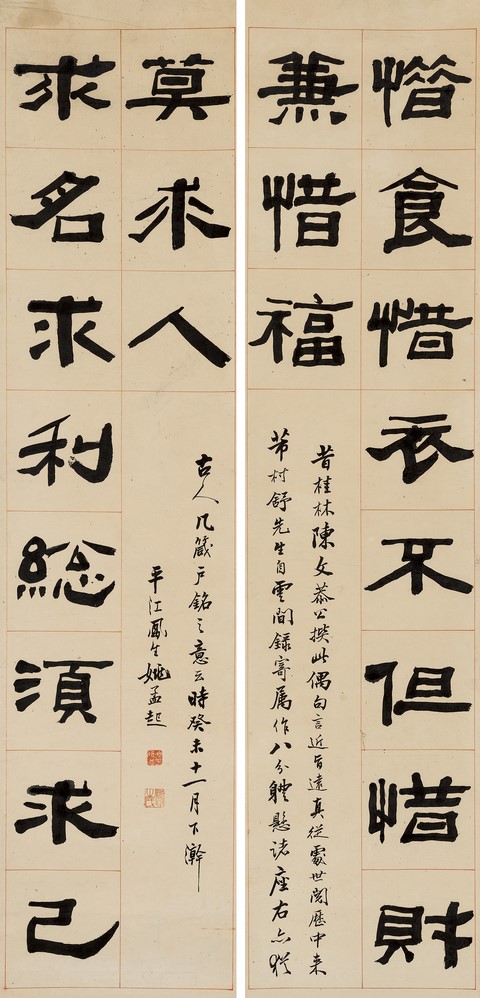 惜食惜衣不但惜財
兼惜福
昔桂林陳文恭公撰此偶句言近旨遠真從處世閱歷中来
芾村舒先生自雲間錄寄属作八分軆懸諸座右亦猶
求名求利総須求己
莫求人
古人几箴戶銘之意云時癸未十一月下澣
平江鳳生姚孟起